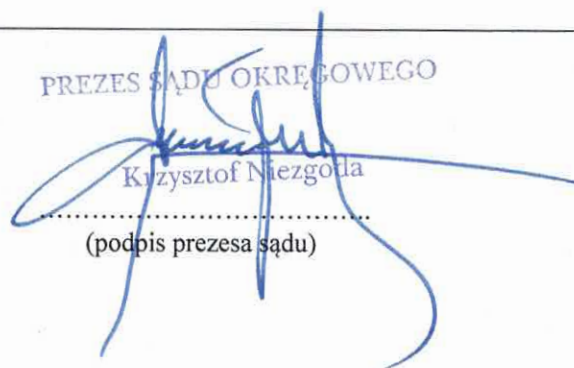 PREZES SĄDU OKRĘGOWEGO
Krzysztof Niezgoda
(podpis prezesa sądu)